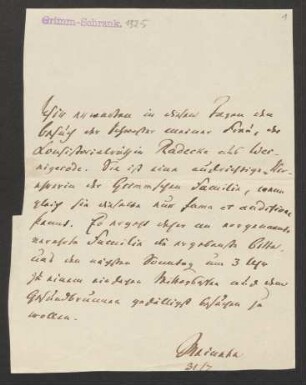 Grimm-Schrank. 1325
1
Wir erwarten in diesen Tagen den
Besuch der Schwester meiner Frau, der
Consistorialräthin Radecke aus Wer-
nigerode. Sie ist eine aufrichtige Ver-
ehrerin der Grimmschen Familie, wenn
gleich sie dieselbe nur fama et auditione
kennt. Es ergeht daher an vorgenannte
verehrte Familie die ergebenste Bitte,
uns den nächsten Sonntag um 3 Uhr
zu einem Mittagbrod auf dem
Gesundbrunnen gefälligst besuchen zu
wollen.
31/7